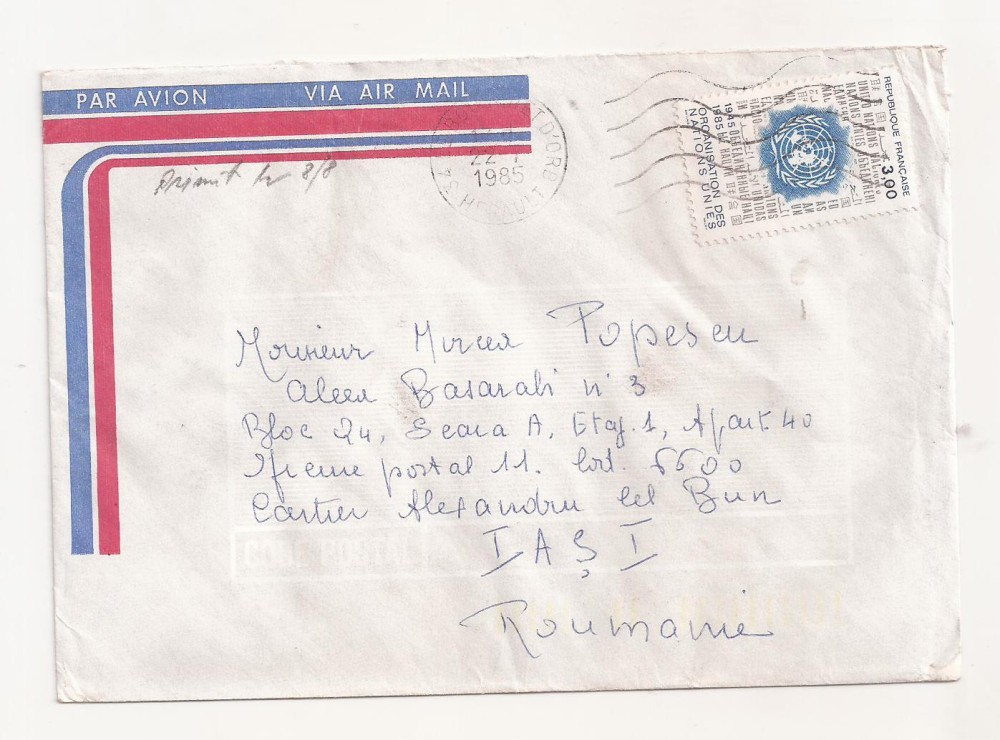 PAR AVION VIA AIR MAIL
22-7
1985
HERAULT
REPUBLIQUE FRANÇAISE
3,00
1945
1985
ORGANISATION DES
NATIONS UNIES
Primit în 8/8
Monsieur Mircea Popescu
Aleea Basarabi n° 3
Bloc 24, Scara A, Etaj. 1, Apart. 40
Oficiul postal 11. Cod. 6600
Cartier Alexandru cel Bun
IAȘI
Roumanie
CODE POSTAL